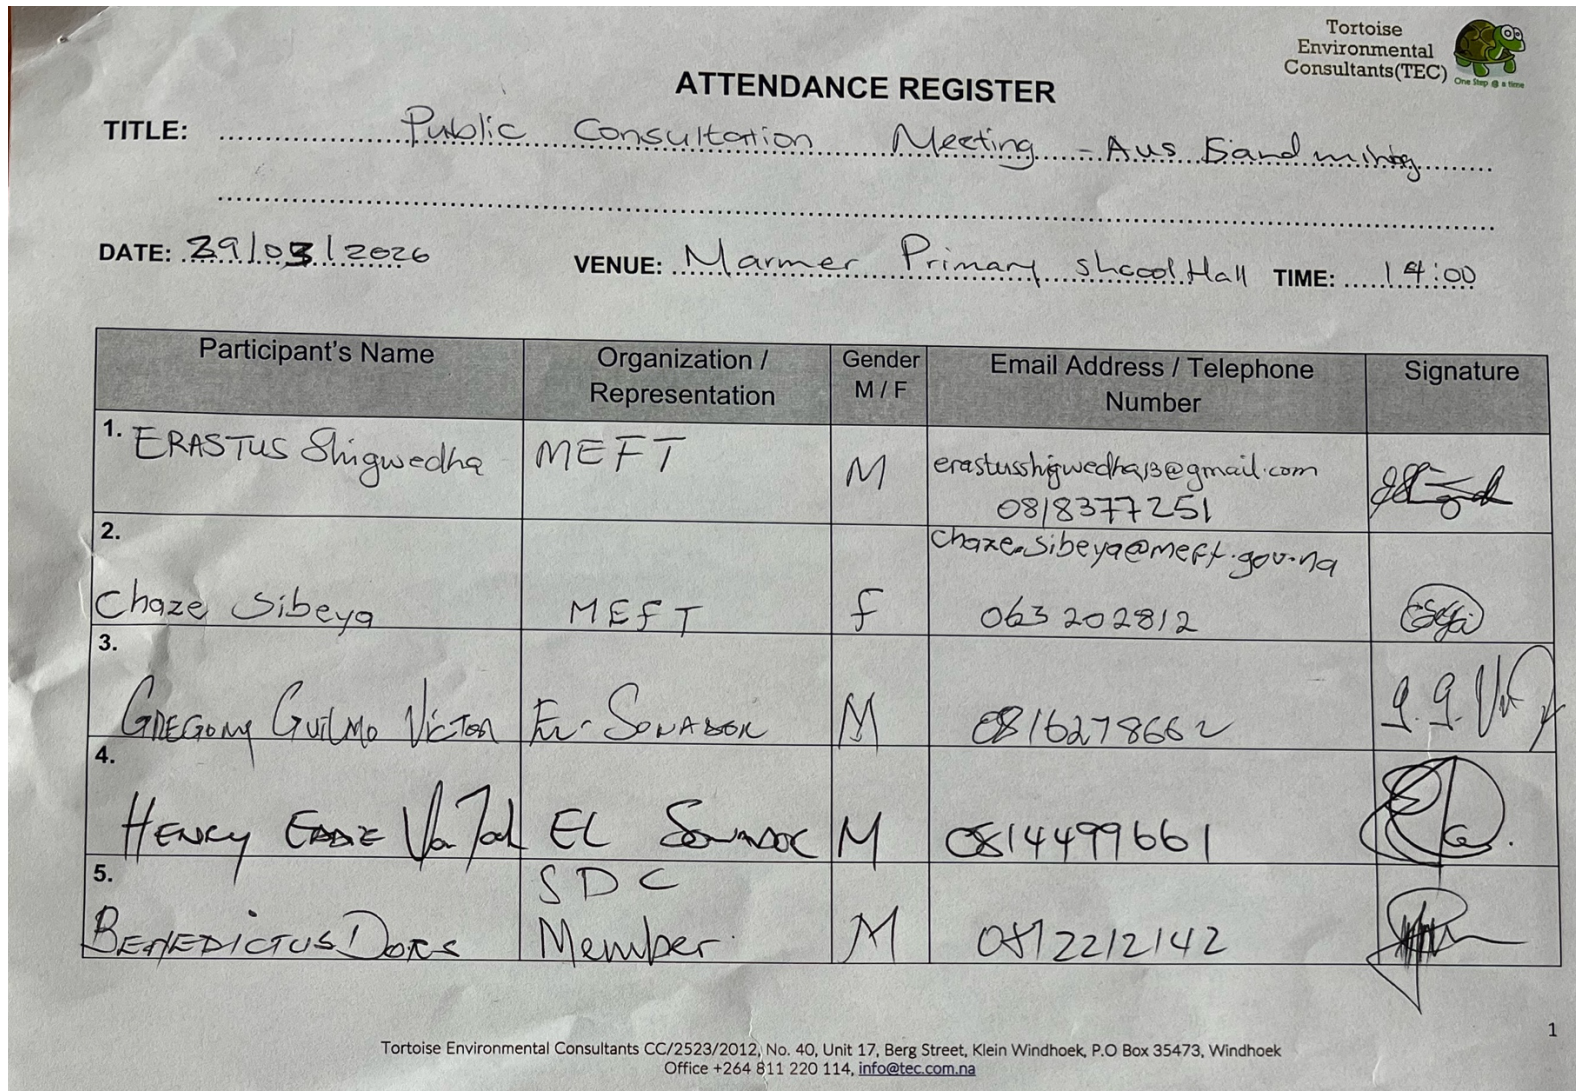 Tortoise
Environmental
Consultants(TEC)
One Step @ a time
ATTENDANCE REGISTER
TITLE: Public Consultation Meeting - Aus Sand mining
DATE: 29/03/2026 VENUE: Marmer Primary shcool Hall TIME: 14:00
Participant's Name Organization / Representation Gender M / F Email Address / Telephone Number Signature
1. ERASTUS Shigwedha MEFT M erastusshigwedha13@gmail.com
0818377251
2. chaze.sibeya@meft.gov.na
Chaze Sibeya MEFT F 063 202812
3.
GREGORY GUILMO VICTOR M 0816278662
4.
HENRY EL M 0814499661
5. SDC
BENEDICTUS Member M 0812212142
1
Tortoise Environmental Consultants CC/2523/2012, No. 40, Unit 17, Berg Street, Klein Windhoek, P.O Box 35473, Windhoek
Office +264 811 220 114, info@tec.com.na